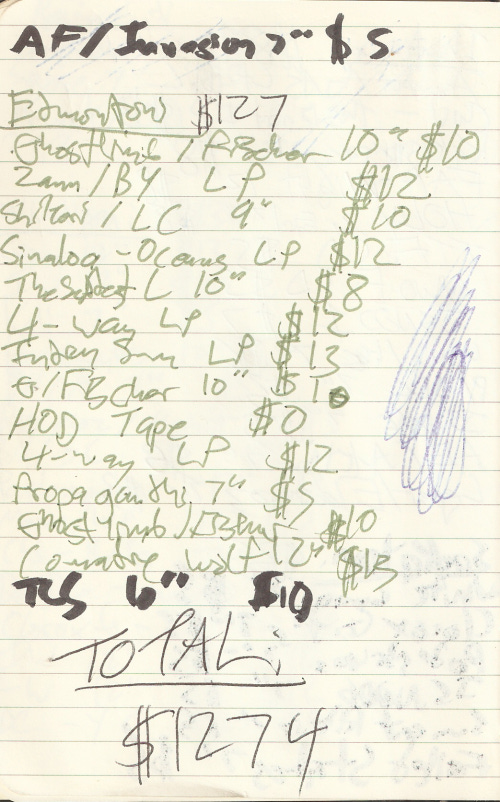 AF/Invasion 7" $5
Edmonton $127
Ghostlimb / 10" $10
Zann/BY LP $12
Shikari / LC 9" $10
Sinaloa - Oceans LP $12
L 10" $8
4-way LP $12
LP $13
G/ 10" $10
HOD Tape $0
4-way LP $12
Propagandhi 7" $5
Ghostlimb/ $10
wolf 12" $13
TLS 6" $10
TOTAL:
$1274